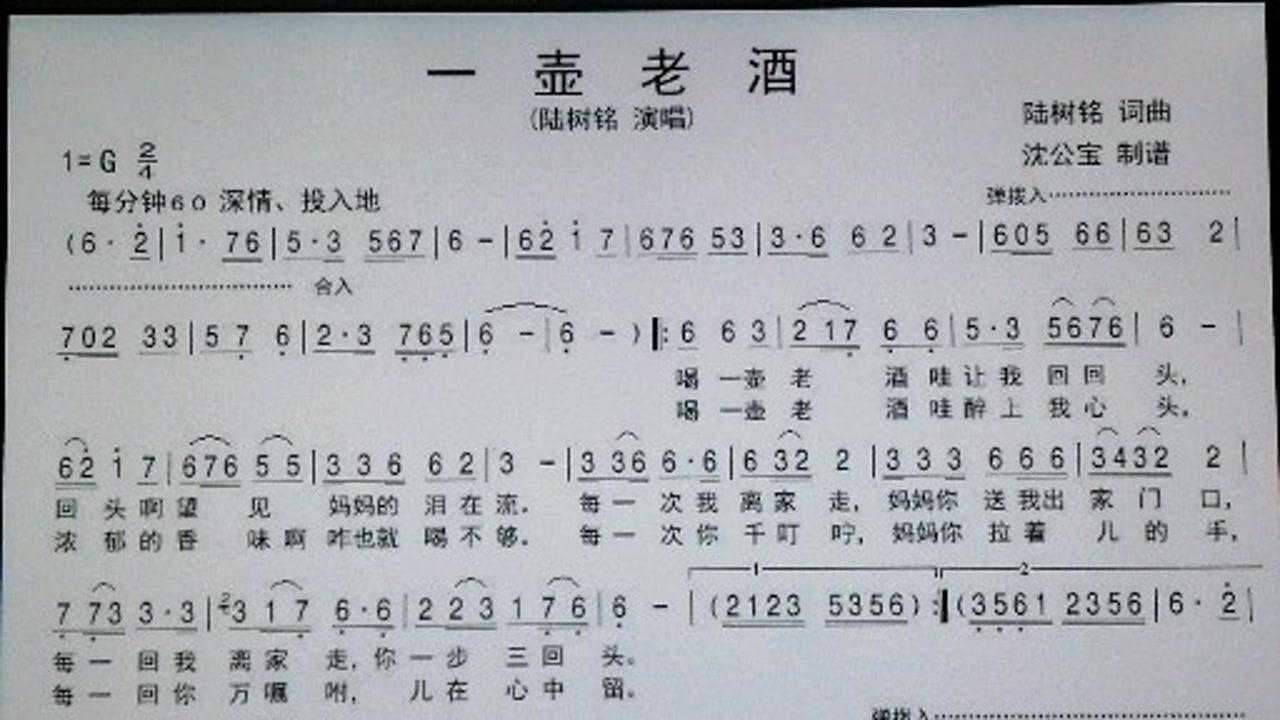 一壶老酒
(陆树铭 演唱)
陆树铭 词曲
1=G 2/4
沈公宝 制谱
每分钟60 深情、投入地
弹拨入
(6· 2|1· 76|5·3 567|6 -|62 1 7|676 53|3·6 6 2|3 -|605 66|63 2|
合入
702 33|5 7 6|2·3 765|6 -|6 -)‖:6 6 3|2 17 6 6|5·3 5676|6 -|
喝 一壶 老 酒 哇让我 回回 头,
喝 一壶 老 酒 哇醉上 我心 头,
62 1 7|676 5 5|3 3 6 6 2|3 -|3 36 6·6|6 32 2|3 3 3 6 6 6|3432 2|
回 头啊望 见 妈妈的 泪在流. 每一 次我 离家 走, 妈妈你 送我出 家 门 口,
浓 郁的香 味啊 咋也就 喝不够. 每一 次你 千叮 咛, 妈妈你 拉着 儿的 手,
7 73 3·3|3 1 7 6·6|2 2 3 1 7 6|6 -|(2123 5356):‖(3561 2356|6· 2|
1 2
每一 回我 离家 走,你一步 三回 头。
每一 回你 万嘱 咐, 儿在 心中 留。
弹拨入